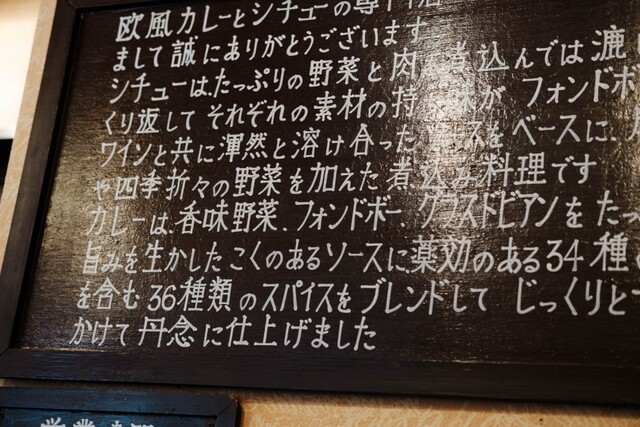 欧風カレーとシチューの専門店
まして誠にありがとうございます
シチューは、たっぷりの野菜と肉 煮込んでは漉
くり返して それぞれの素材の持 味が フォンドボ
ワインと共に渾然と溶け合った ースをベースに、
や四季折々の野菜を加えた煮込み料理です
カレーは、香味野菜、フォンドボー、グラスドビアンをたっ
旨みを生かしたこくのあるソースに薬効のある34種
を含む36種類のスパイスをブレンドして じっくりと
かけて丹念に仕上げました
営業